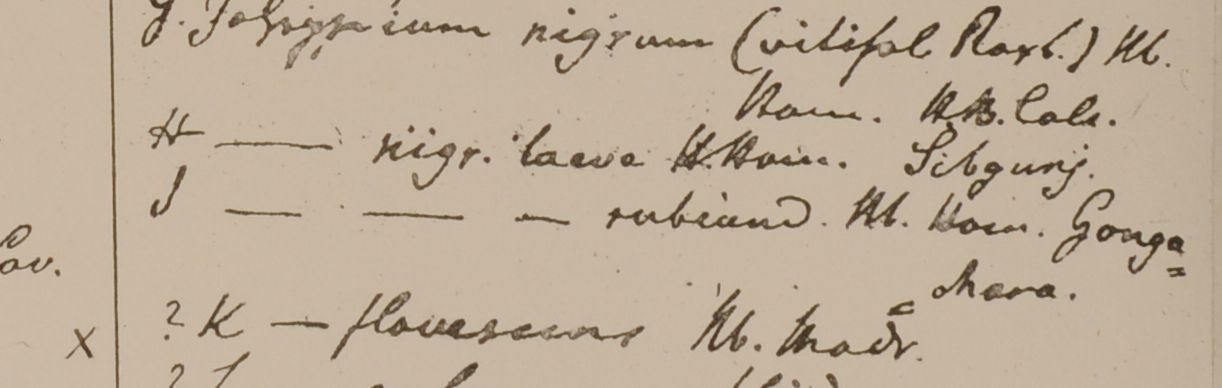 G. Gossypium nigrum (vitifol Roxb.) Hb.
Ham. H.B. Calc.
H —— nigr. laeve H. Ham. Sibgunj.
J — — — rubicund. Hb. Ham. Gonga=
=chara.
Cav.
? K — flavescens Hb. Madr.
X
? L